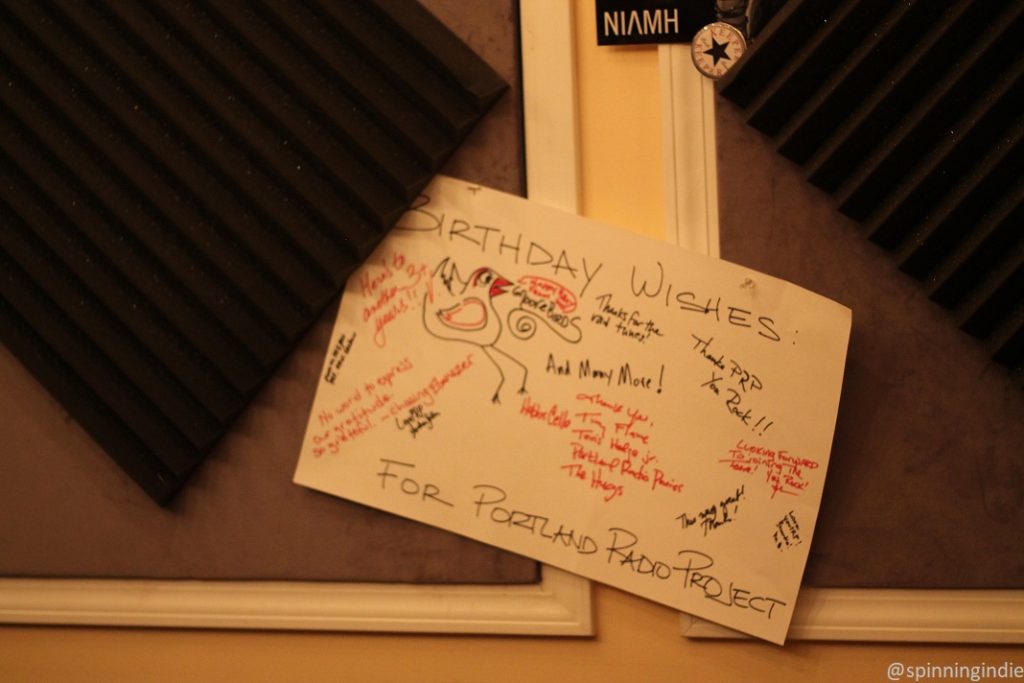 NIAMH
BIRTHDAY WISHES:
Here's to
another 3x
years!!
GROOVEBIRDS
Thanks for the
rad tunes!
Thanks PRP
You Rock!!
And Many More!
No word to express
our gratitude.
So grateful. - Chasing Ebenezer
Thank You,
Tiny Flame
Portland Radio Project
The Hugs
LOOKING FORWARD
TO JOINING THE
Team! You Rock!
This was great!
Thanks!
FOR PORTLAND RADIO PROJECT
@spinningindie